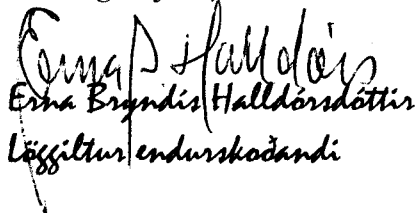 Erna B Halldórs
Erna Bryndís Halldórsdóttir
Löggiltur endurskoðandi